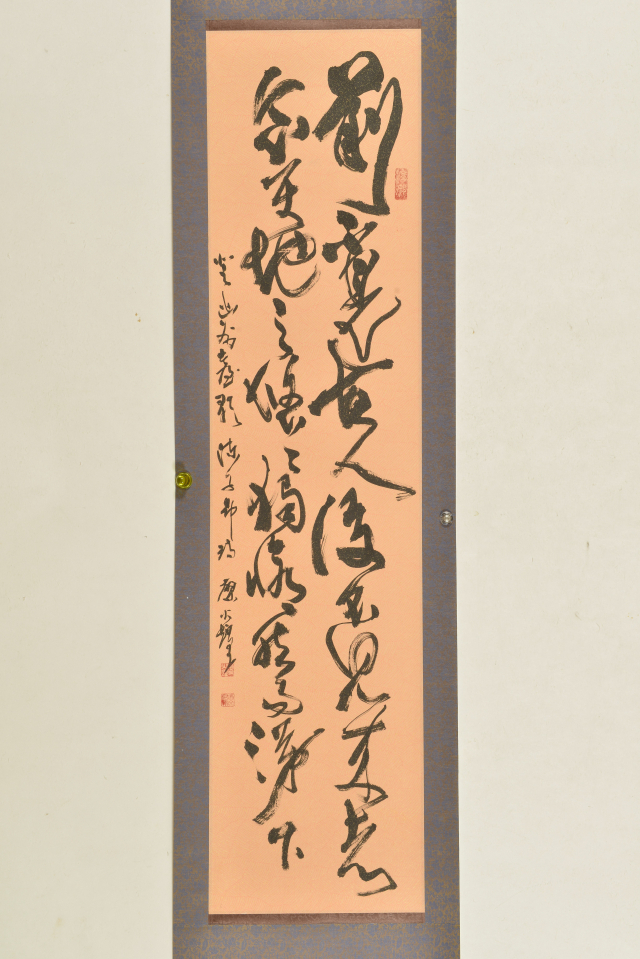 前不見古人後不見來者
念天地之悠悠獨愴然而涕下
登幽州臺歌 陳子昂詩